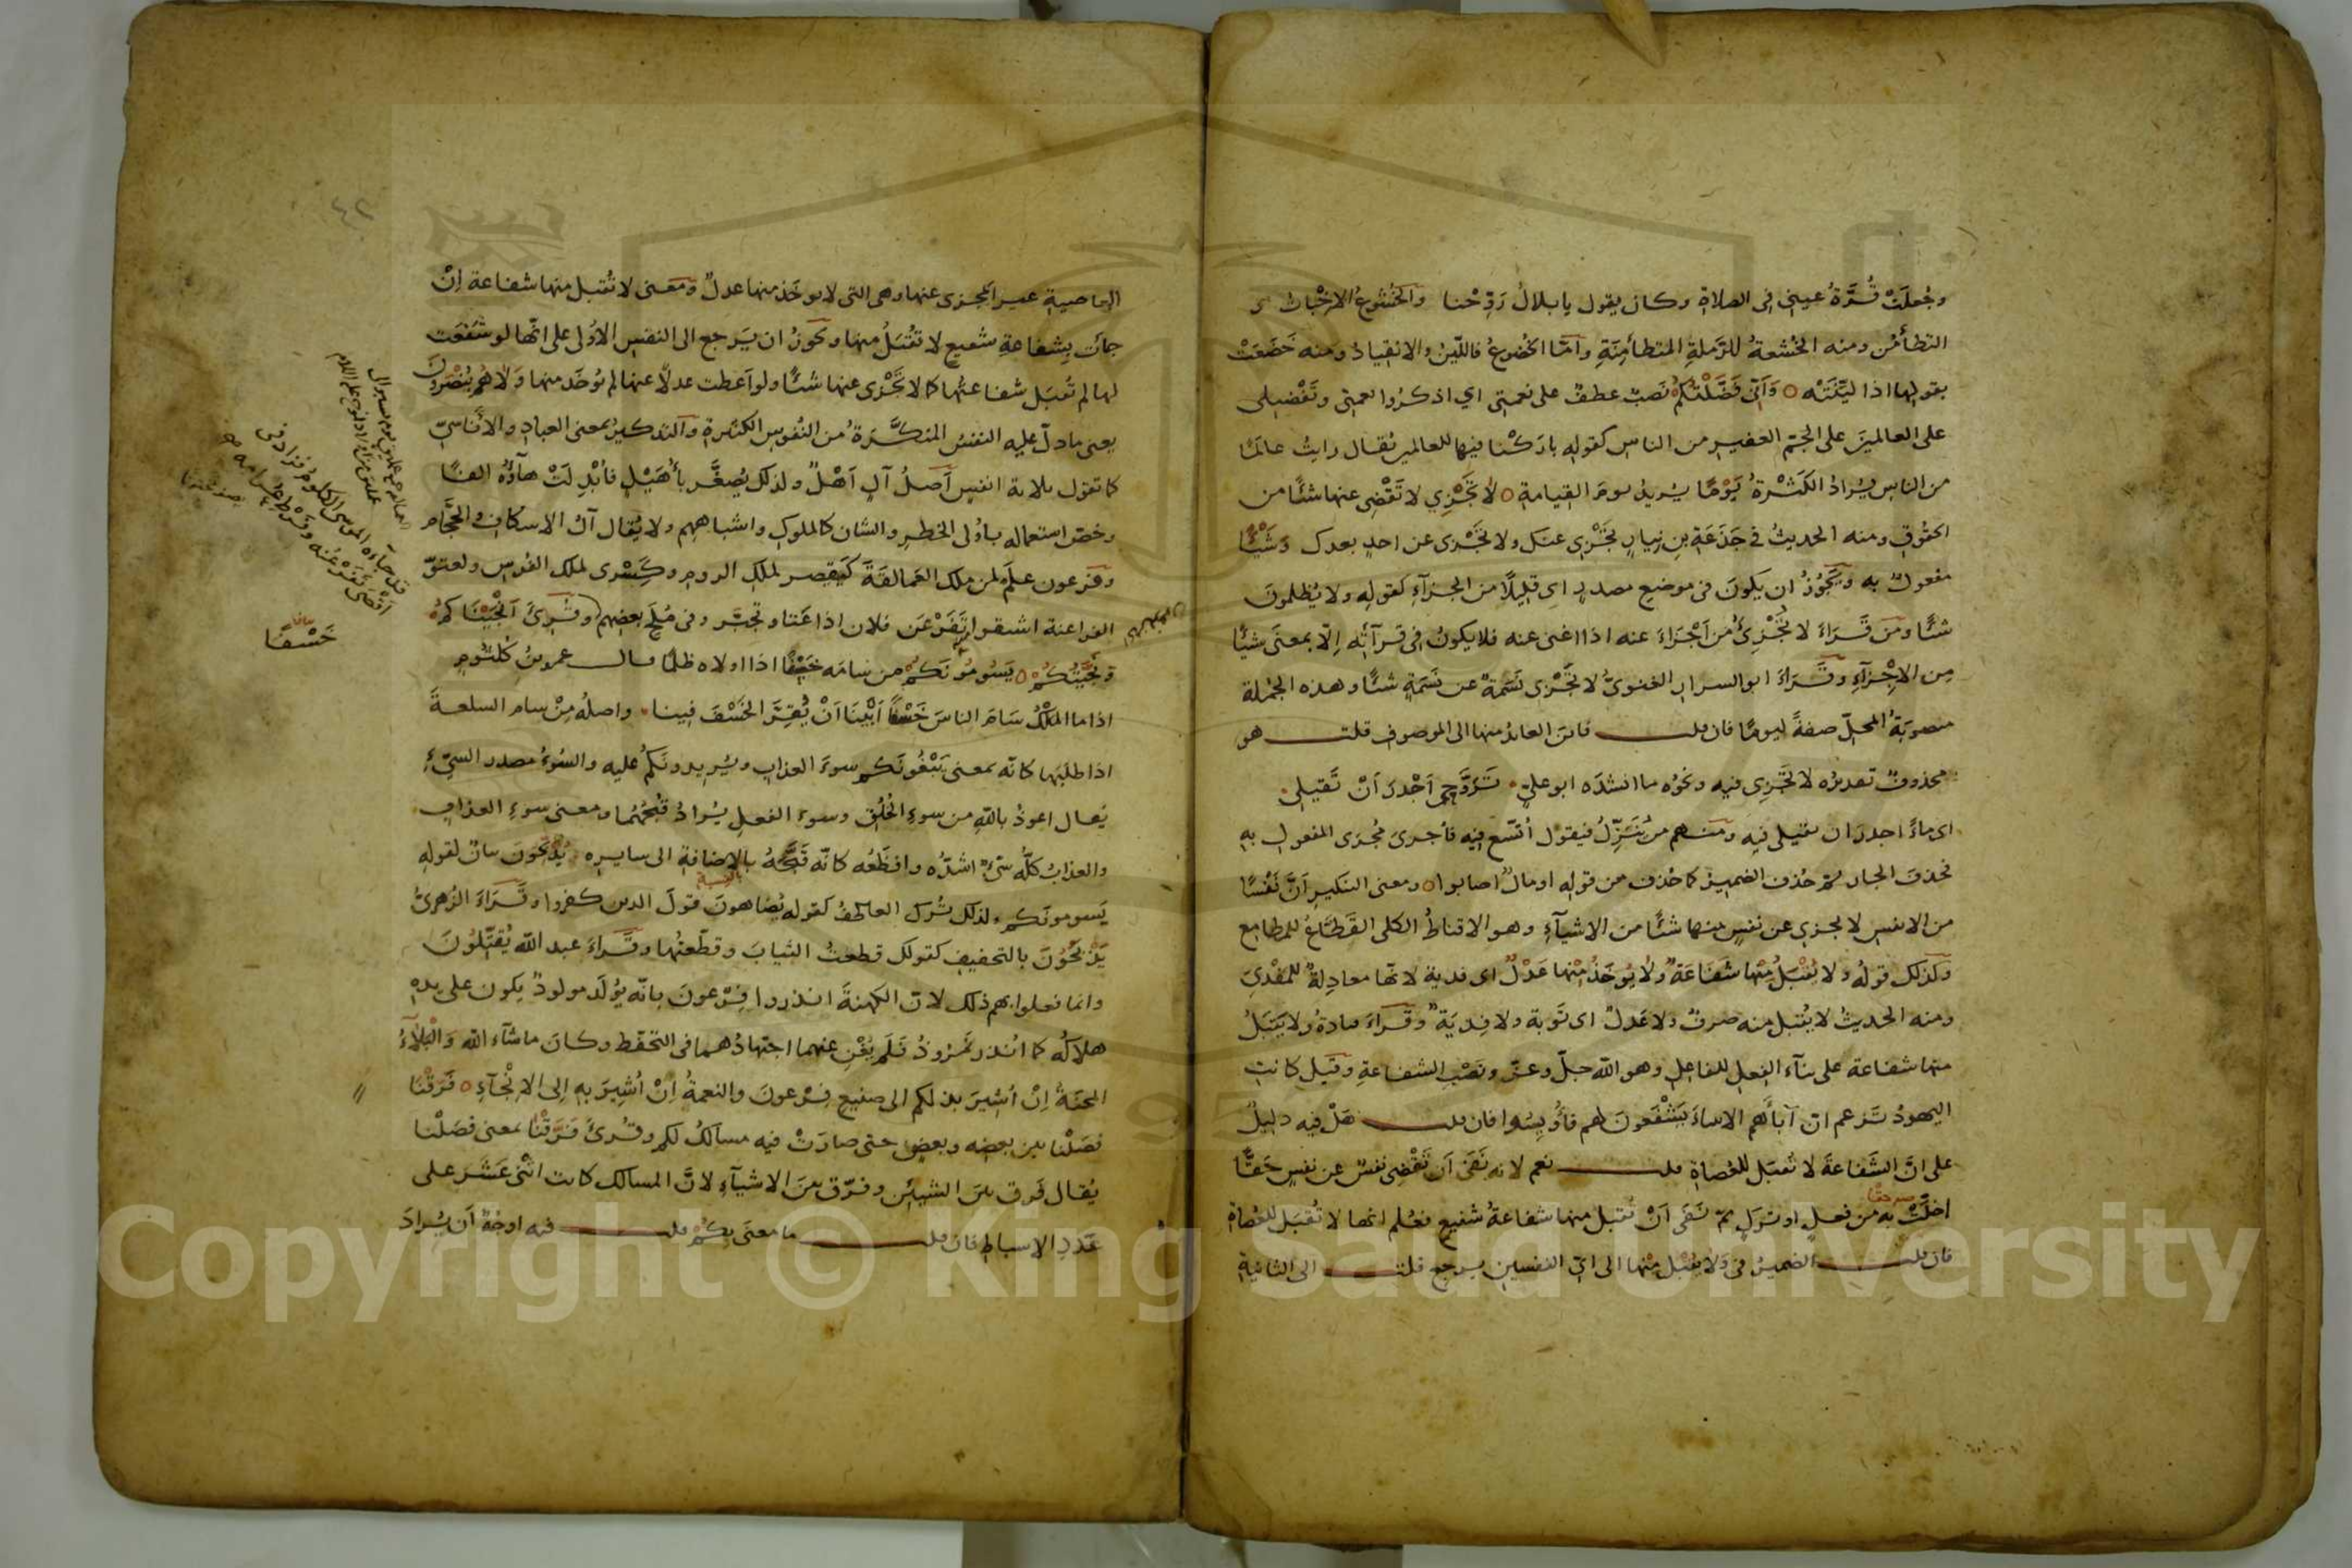 وجُعلَتْ قُرَّةُ عيني في الصلاةِ وكان يقول يا بلالُ رَوِّحْنا والخُشُوعُ الاِخْباتُ و
التطأمُن ومنه الخُشعةُ للرَّملةِ المتطأمِنَةِ وأمّا الخُضوعُ فاللِّينُ والانقيادُ ومنه خَضَعَتْ
بقولها اذا ليَّنَتْه وَأَنِّي فَضَّلْتُكُمْ نَصبٌ عطفٌ على نعمتي اي اذكرُوا نعمتي وتَفْضيلي
على العالمينَ على الجمّ الغفير من الناس كقوله باركْنا فيها للعالمين يُقال رايتُ عالَمًا
من الناس يُرادُ الكَثْرةُ يَوْمًا يُريدُ يومَ القيامةِ لا تَجْزِي لا تَقْضِي عنها شئًا من
الحقُوقِ ومنه الحديثُ في جَذَعَةِ بنِ نِيارٍ تَجْزِي عنكَ ولا تَجْزي عن احدٍ بعدك وَشَيْئًا
مفعولٌ به ويَجُوزُ ان يَكونَ في موضع مصدرٍ اي قليلًا من الجزآءِ كقوله ولا يُظلمونَ
شئًا ومَن قَرَاءَ لا تُجْزِئُ من اَجْزَاءَ عنه اذا اغنى عنه فلا يكونُ في قرآئتِه اِلّا بمعنَى شيئًا
مِن الاِجْزآءِ وقَرَاءَ ابو السرار الغنويُّ لا تَجْزي نَسَمَةٌ عن نَسَمَةٍ شئًا وهذه الجُملة
منصوبَةُ المحلّ صفةً ليومًا فان قلت فاين العائدُ منها الى الموصوف قلت هو
محذوفٌ تقديرُه لا تَجْزِي فيه ونحوُه ما انشدَه ابو عليٍّ تَرَوَّحِي اَجْدَرَ اَنْ تَقيلي
اي ماءً اجدرَ ان تقيلي فيه ومنهم من يُنَزِّلُ فيقول اُتّسع فيه فاُجري مُجرَى المفعول به
فحُذفَ الجار ثمّ حُذف الضميرُ كما حُذف من قوله او مالٌ اصابوا ومعنى التنكير اَنَّ نَفْسًا
من الانفس لا تجزي عن نفسٍ منها شئًا من الاشيآءِ وهو الاقناطُ الكلي القَطَّاعُ للمطامع
وكذلك قولُه ولا يُقْبَلُ مِنْها شَفَاعَةٌ ولا يُوخَذُ مِنْها عَدْلٌ اي فدية لانّها معادِلةٌ للمَفْديِّ
ومنه الحديثُ لا يُقبل منه صرفٌ ولا عَدلٌ اي تَوبة ولا فِديَة وقَراءَ قتادةُ ولا يَقبَلُ
منها شفاعة على بنآءِ الفعلِ للفاعلِ وهو الله جلّ وعزّ ونَصْبِ الشفاعةِ وقيل كانت
اليهودُ تَزعم انّ آبآءَهم الانبياءَ يَشْفَعونَ لهم فاُويِسُوا فان قلت هَلْ فيه دليلٌ
على انَّ الشَفاعةَ لا تُقبَل للعُصاةِ قلت نعم لانه نَفَى اَن تَقْضِي نفسٌ عن نفسٍ حَقًّا
اخلّتْ به من فعلٍ او تركٍ ثمّ نَفَى اَنْ تُقبل منها شفاعةُ شفيعٍ فعُلم انها لا تُقبَل للعُصاةِ
فان قلت الضميرُ في وَلا يُقْبَلُ مِنْها الى ايِّ النفسينِ يرجع قلت الى الثانيةِ
٤٢
العاصيةِ غيرِ المجزي عنها وهي التي لا يوخَذ منها عدلٌ ومعنى لا تُقبل منها شفاعة اِنْ
جاءَت بِشفاعةِ شفيعٍ لا تقْبَلُ منها ويَجوزُ ان يَرجع الى النفس الاُولى على انّها لو شَفَعَت
لها لم تُقبَل شفاعتُها كما لا تَجْزي عنها شئًا ولو اَعْطت عدلًا عنها لم يُوخَذ منها وَلا هُم يُنْصَرونَ
يعني ما دلّ عليه النفسُ المنكَّرَةُ من النُفوس الكثيرةِ والتذكيرُ بمعنى العباد والاَناسيّ
كما تقول ثلاثة انفس اَصلُ آلٍ اَهْلٌ ولذلك يُصغَّر باُهَيْلٍ فاُبْدِلَتْ هآؤُهُ الفًا
وخصّ استعماله باُولى الخَطرِ والشان كالملوك واشباهِهم ولا يُقال آلُ الاسكافِ والحجَّام
وفرعون عَلَمٌ لمن ملك العَمالقَةَ كقيصر لملك الروم وكِسْرى لملك الفُرسِ ولعتوّ
الفراعنة اشتقوا تَفَرْعَن فلان اذا عَتا وتجبَّر وفي مُلَحِ بعضِهم وقُرئَ اَنْجَيْناكُمْ
ونَجَّيْتُكُمْ يَسُومُونَكم من سامَه خَسْفًا اذا اولاه ظلمًا قال عمرو بنُ كُلْثومٍ
اذا ما الملْكُ سَامَ الناسَ خَسْفًا اَبَيْنَا اَنْ يُقِرَّ الخَسْفَ فينا واصلُه مِنْ سام السلعةَ
اذا طلبَها كانّه بمعنى يَبْغُونَكم سوءَ العذابِ ويُريدونَكُم عليه والسُوءُ مصدر السيّءِ
يُقال اعوذُ باللهِ من سوءِ الخُلُقِ وسوءِ الفعلِ يُرادُ قُبْحُهُما ومعنى سوءِ العذاب
والعذابُ كلُّه سَيِّءٌ اشدُّه وافظَعُه كانّه قبَّحَهُ بالاِضافةِ الى سايرِه يُذَبِّحُونَ بيانٌ لقوله
يَسومونَكم ولذلك تُرك العاطفُ كقوله يُضاهونَ قولَ الذين كفروا وقَرَاءَ الزُهريُّ
يَذْبَحُونَ بالتخفيف كقولك قطعتُ الثيابَ وقطّعتُها وقَرَاءَ عبد اللهِ يُقَتِّلُونَ
وانما فعلوا بهم ذلك لانّ الكهنةَ انذروا فِرْعونَ بانّه يُولَد مولودٌ يكون على يدِه
هلاكُه كما اُنذر نَمْرُوذُ فَلَم يُغْنِ عنهما اجتهادُهما في التحفّظِ وكانَ ما شآء الله والبَلآءُ
المحنَةُ اِنْ اُشيرَ بذلكم الى صنيع فِرْعونَ والنعمةُ اِنْ اُشيرَ به اِلى الاِنْجآءِ فَرَقْنا
فصَلْنا بين بعضِه وبعضٍ حتى صارَتْ فيه مسالكُ لكم وقُرئَ فَرَّقْنا بمعنى فصَّلْنا
يُقال فَرق بينَ الشيئين وفرّق بينَ الاشيآءِ لانّ المسالك كانت اثْنَي عَشَرَ على
عَدَدِ الاسباطِ فان قلت ما معنَى بِكُمْ قلت فيه اوجهٌ اَن يُرادَ
قد جآءه الموسى الكلومُ فزاد في
اَقْصَى تَفَرْعُنِه وفَرْطِ عُرامِه
خَسْفًا
Copyright © King Saud University